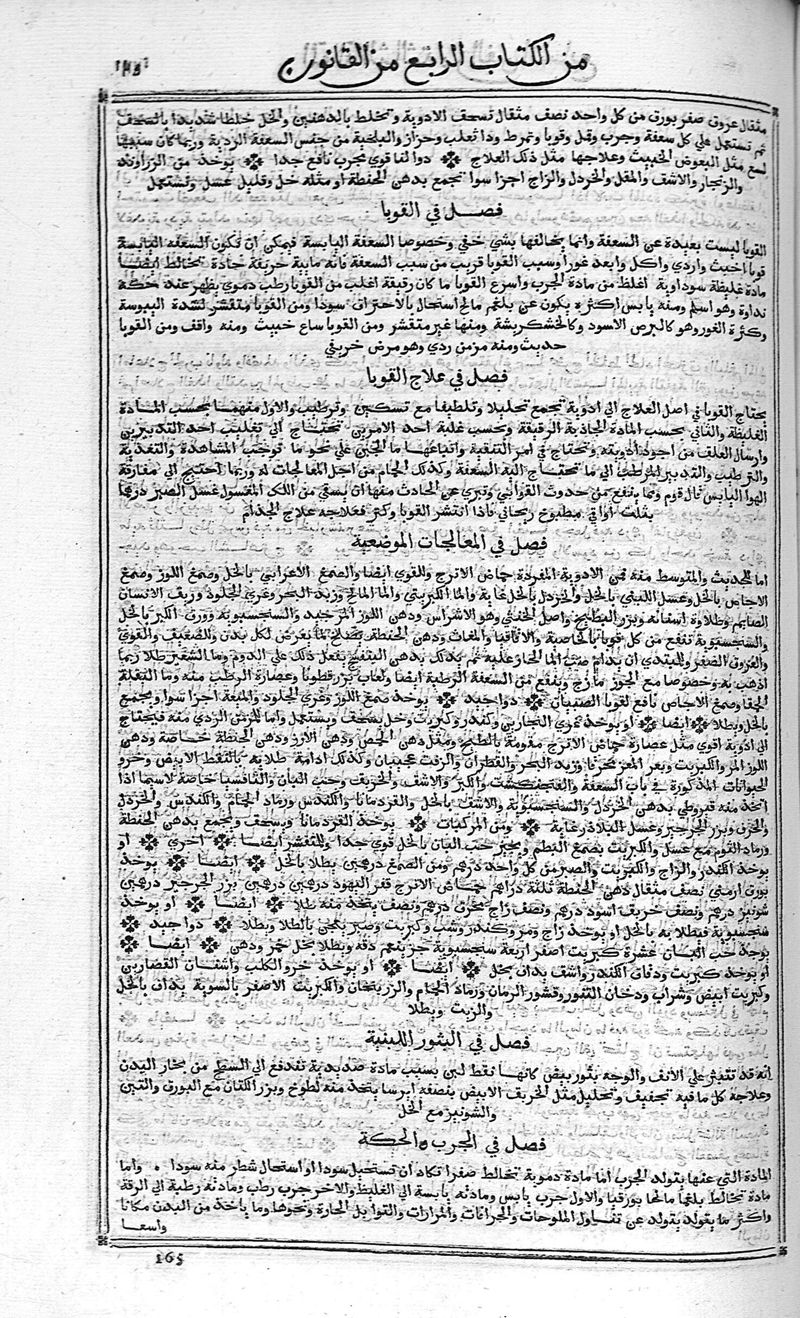 من الكتاب الرابع من القانون
مثقال عروق صفر بورق من كل واحد نصف مثقال تسحف الادوية وتخلط بالدهنين والخل خلطا شديدا بالسحف
ثم تستعمل علي كل سعفة وجرب وقمل وقوبا وتمرط ودا ثعلب وحزاز والبلخية من جنس السعفة الردية وربما كان سببها
لسع مثل البعوض الخبيث وعلاجها مثل ذلك العلاج دوا لنا قوي مجرب نافع جدا يوخد من الزراوند
والزنجار والاشف والمقل والخردل والزاج اجزا سوا تجمع بدهن الحنطة او مثله خل وقليل عسل وتستعمل
فصل في القوبا
القوبا ليست بعيدة عن السعفة وانما يخالفها بشي خفي وخصوصا السعفة اليابسة فيمكن ان تكون السعفه اليابسة
قوبا اخبث واردي واكل وابعد غورا وسبب القوبا قريب من سبب السعفة فانه مايية حريفة حادة تخالط ايضا
مادة غليظة سوداوية اغلظ من مادة الجرب واسرع القوبا ما كان رقيقة اغلب من القوبا رطب دموي يظهر عند حكه
نداوة وهو اسلم ومنه يابس اكثره يكون عن بلغم مالح استحال بالاحتراق سودا ومن القوبا متقشر لشدة اليبوسة
وكثرة الغور وهو كالبرص الاسود وكالخشكريشة ومنها غير متقشر ومن القوبا ساع خبيث ومنه واقف ومن القوبا
حديث ومنه مزمن ردي وهو مرض خريفي
فصل في علاج القوبا
يحتاج القوبا في اصل العلاج الي ادوية تجمع تحليلا وتلطيفا مع تسكين وترطيب والاول منهما بحسب المادة
الغليظة والثاني بحسب المادة الحادة الرقيقة وتحسب غلبة احد الامرين تحتاج الي تغليب احد التدبيرين
وارسال العلق من اجود ادويته وتحتاج في امر التنقية واتباعها ما الجبن علي نحو ما توجب المشاهدة والتغذية
والترطيب والتدبير المرطب الي ما تحتاج اليه السعفة وكذلك الحمام من اجل المعالجات له وربما احتيج الي مفارقة
الهوا اليابس قال قوم ومما ينفع من حدوث القوابي وتبري عن الحادث منها ان يستي من اللك المغسول غسل الصبر درهما
بثلث اواقي مطبوخ ريحاني فاذا انتشر القوبا وكثر فعلاجه علاج الجذام
فصل في المعالجات الموضعية
اما للحديث والمتوسط منه فمن الادوية المفردة حماض الاترج وللقوي ايضا والصمغ الاعرابي بالخل وصمغ اللوز وصمغ
الاجاص بالخل وعسل اللبني بالخل والخردل بالخل غاية والما الكبريتي والما المالح وزبد البحر وغري الجلود وريق الانسان
الصايم وطلاوة اسنانه وبزر البطيخ واصل الخنثي وهو الاشراس ودهن اللوز المر جيد والسنجسبوية وورق الكبر بالخل
والسنجسبوية تنفع من كل قوبا بالخاصية والاقاقيا والمغاث ودهن الحنطة لكل بدن وللضعيف والقوي
والعروق الصفر وللمبتدي ان يدام صب الما الحار عليه ثم يدلك بدهن البنفسج يفعل ذلك علي الدوم وما الشعير طلا ربما
اذهب به وخصوصا مع الخوز مازج وينفع من السعفة الرطبة ايضا ولعاب بزر قطونا وعصارة الرطب منه وما البقلة
الحمقا وصمغ الاجاص نافع لقوبا الصبيان دوا جيد يوخد صمغ اللوز وغري الجلود والميعة اجزا سوا ويجمع
بالخل ويطلا ايضا او يوخد غري النجارين وكندر وكبريت وخل يسحف ويستعمل واما المزمن الردي منه فيحتاج
الي ادوية اقوي مثل عصارة حماض الاترج مقومة بالطبخ ومثل دهن الحمص ودهن الارز ودهن الحنطة خاصة ودهن
اللوز المر والكبريت وبعر المعز محرقا وزبد البحر والقطران والزفت عجيبان وكذلك ادامة طلايه بالنفط الابيض وخرو
الحيوانات المذكورة في باب السعفة والفنجكشت والكبر والاشف والخربف وحب البان والثافسيا خاصة لاسيما اذا
اتخذ منه قيروطي بدهن الخردل والسنجسبوية والاشف بالخل والقردمانا والكندس ورماد الحمام والكندس والخردل
والحرف وبزر الجرجير وعسل البلادر غاية ومن المركبات يوخد القردمانا ويسحف ويجمع بدهن الحنطة
ورماد الثوم مع عسل والكبريت بصمغ البطم ويجيز حب البان بالخل قوي جدا وللمتقشر ايضا اخري او
يوخد الكندر والزاج والكبريت والصبر من كل واحد درهم ومن الصمغ درهمين يطلا بالخل ايضا يوخد
بورق ارمني نصف مثقال دهن الحنطة ثلثة دراهم حماض الاترج قفر اليهود درهمين درهمين بزر الجرجير درهمين
شونيز درهم ونصف خربف اسود درهم ونصف زاج محرق درهم ونصف يتخد منه طلا ايضا او يوخد
سنجسبوية فيطلا به بالخل او يوخد زاج ومر وكندر وشب وكبريت وصبر يعجن بالطلا ويطلا دوا جيد
يوجد حب البان عشرة كبريت اصفر اربعة سنجسبوية جز ينعم دقه ويطلا بخل خمر ودهن ايضا
او يوخد كبريت ودقاق الكندر واشف يداف بخل ايضا او يوخد خرو الكلب واشنان القصارين
وكبريت ابيض وشراب ودخان التنور وقشور الرمان ورماد الحمام والزرنيخان والكبريت الاصفر بالسوية يداف بالخل
والزيت ويطلا
فصل في البثور اللبنية
انه قد تنتثر علي الانف والوجه بثور بيض كانها نقط لبن بسبب مادة صديدية تندفع الي السطح من بخار البدن
وعلاجه كل ما فيه تجفيف وتحليل مثل الخربف الابيض بنصفه ايرسا يتخد منه لطوخ وبزر الكتان مع البورق والتين
والشونيز مع الخل
فصل في الجرب والحكة
المادة التي عنها يتولد الجرب اما مادة دموية تخالط صفرا تكاد ان تستحيل سودا او استحال شطر منه سودا واما
مادة تخالط بلغما مالحا بورقيا والاول جرب يابس ومادته يابسة الي الغليظ والاخر جرب رطب ومادته رطبة الي الرقة
واكثر ما يتولد يتولد عن تناول الملوحات والحرافات والمرارات والتوابل الحارة ونحوها وما ياخذ من البدن مكانا
واسعا
165